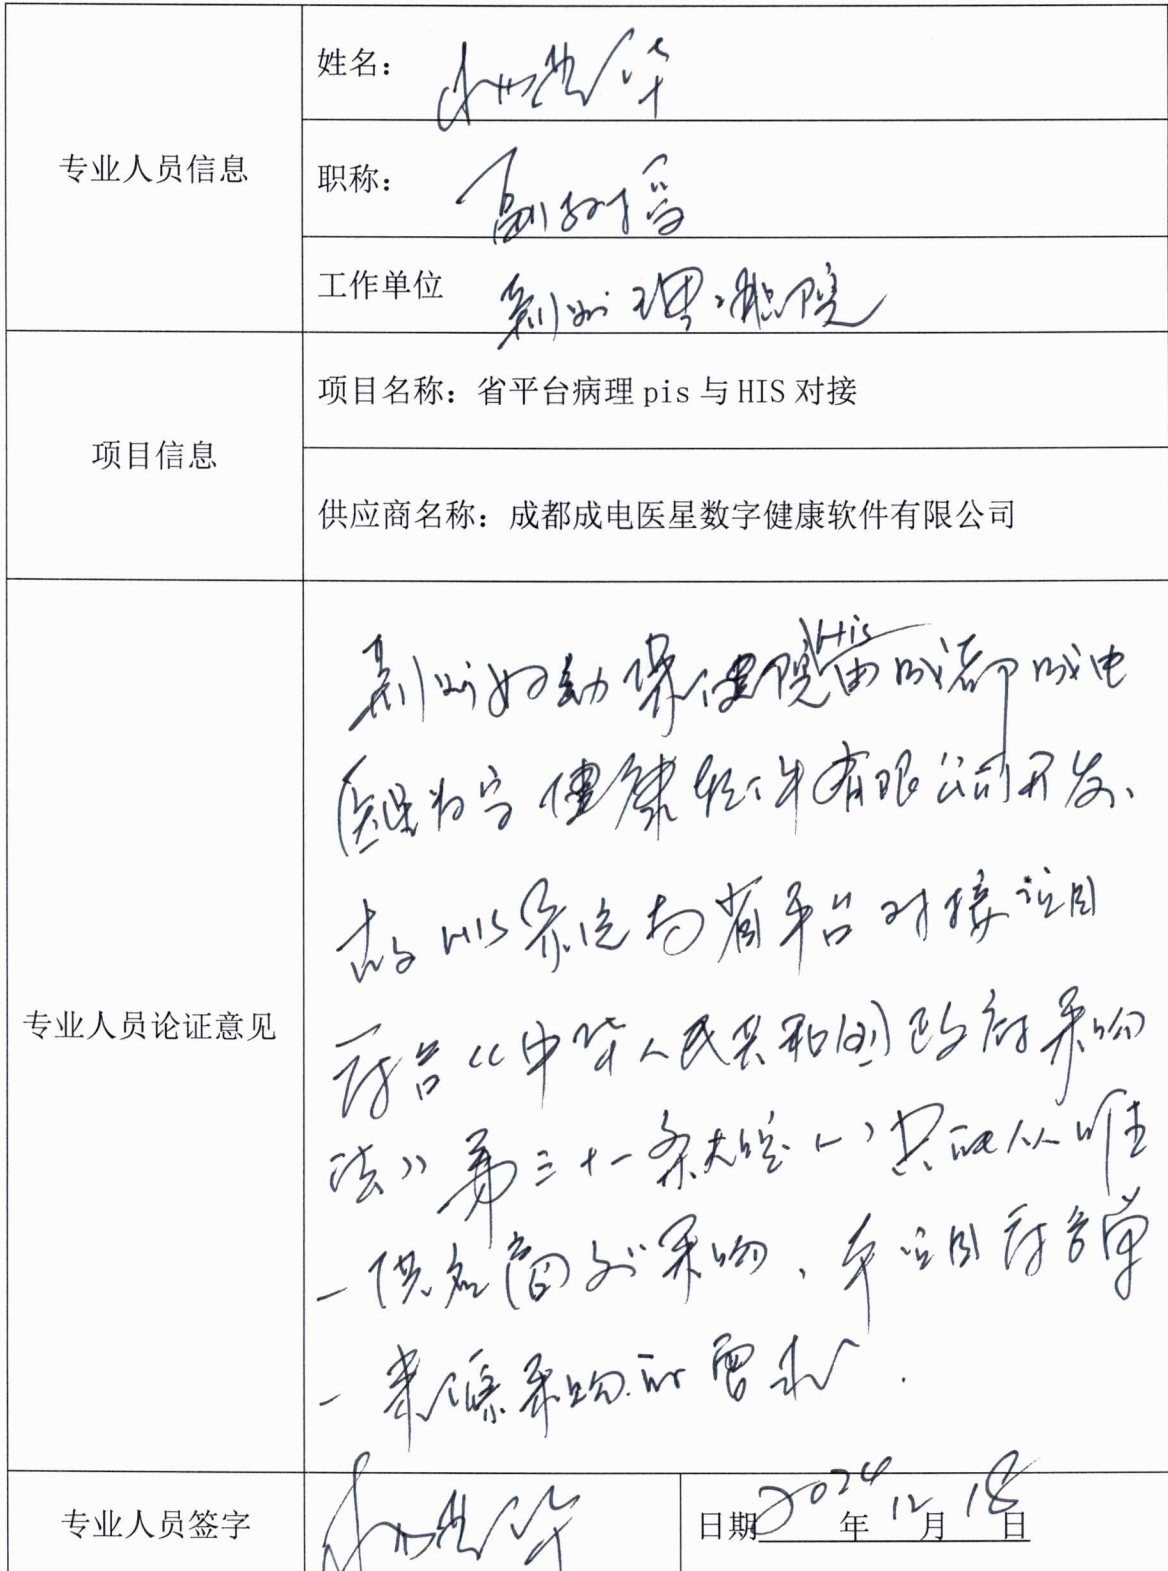 专业人员信息
姓名：
职称： 副教授
工作单位 荆州理工职院
项目信息
项目名称：省平台病理 pis 与 HIS 对接
供应商名称：成都成电医星数字健康软件有限公司
专业人员论证意见
荆州妇幼保健院His由成都成电
医星数字健康软件有限公司开发、
故HIS系统与省平台对接项目
符合《中华人民共和国政府采购
法》第三十一条规定(一)只能从唯
一供应商处采购、本项目符合单
一来源采购的要求.
专业人员签字
日期 2024 年 12 月 18 日